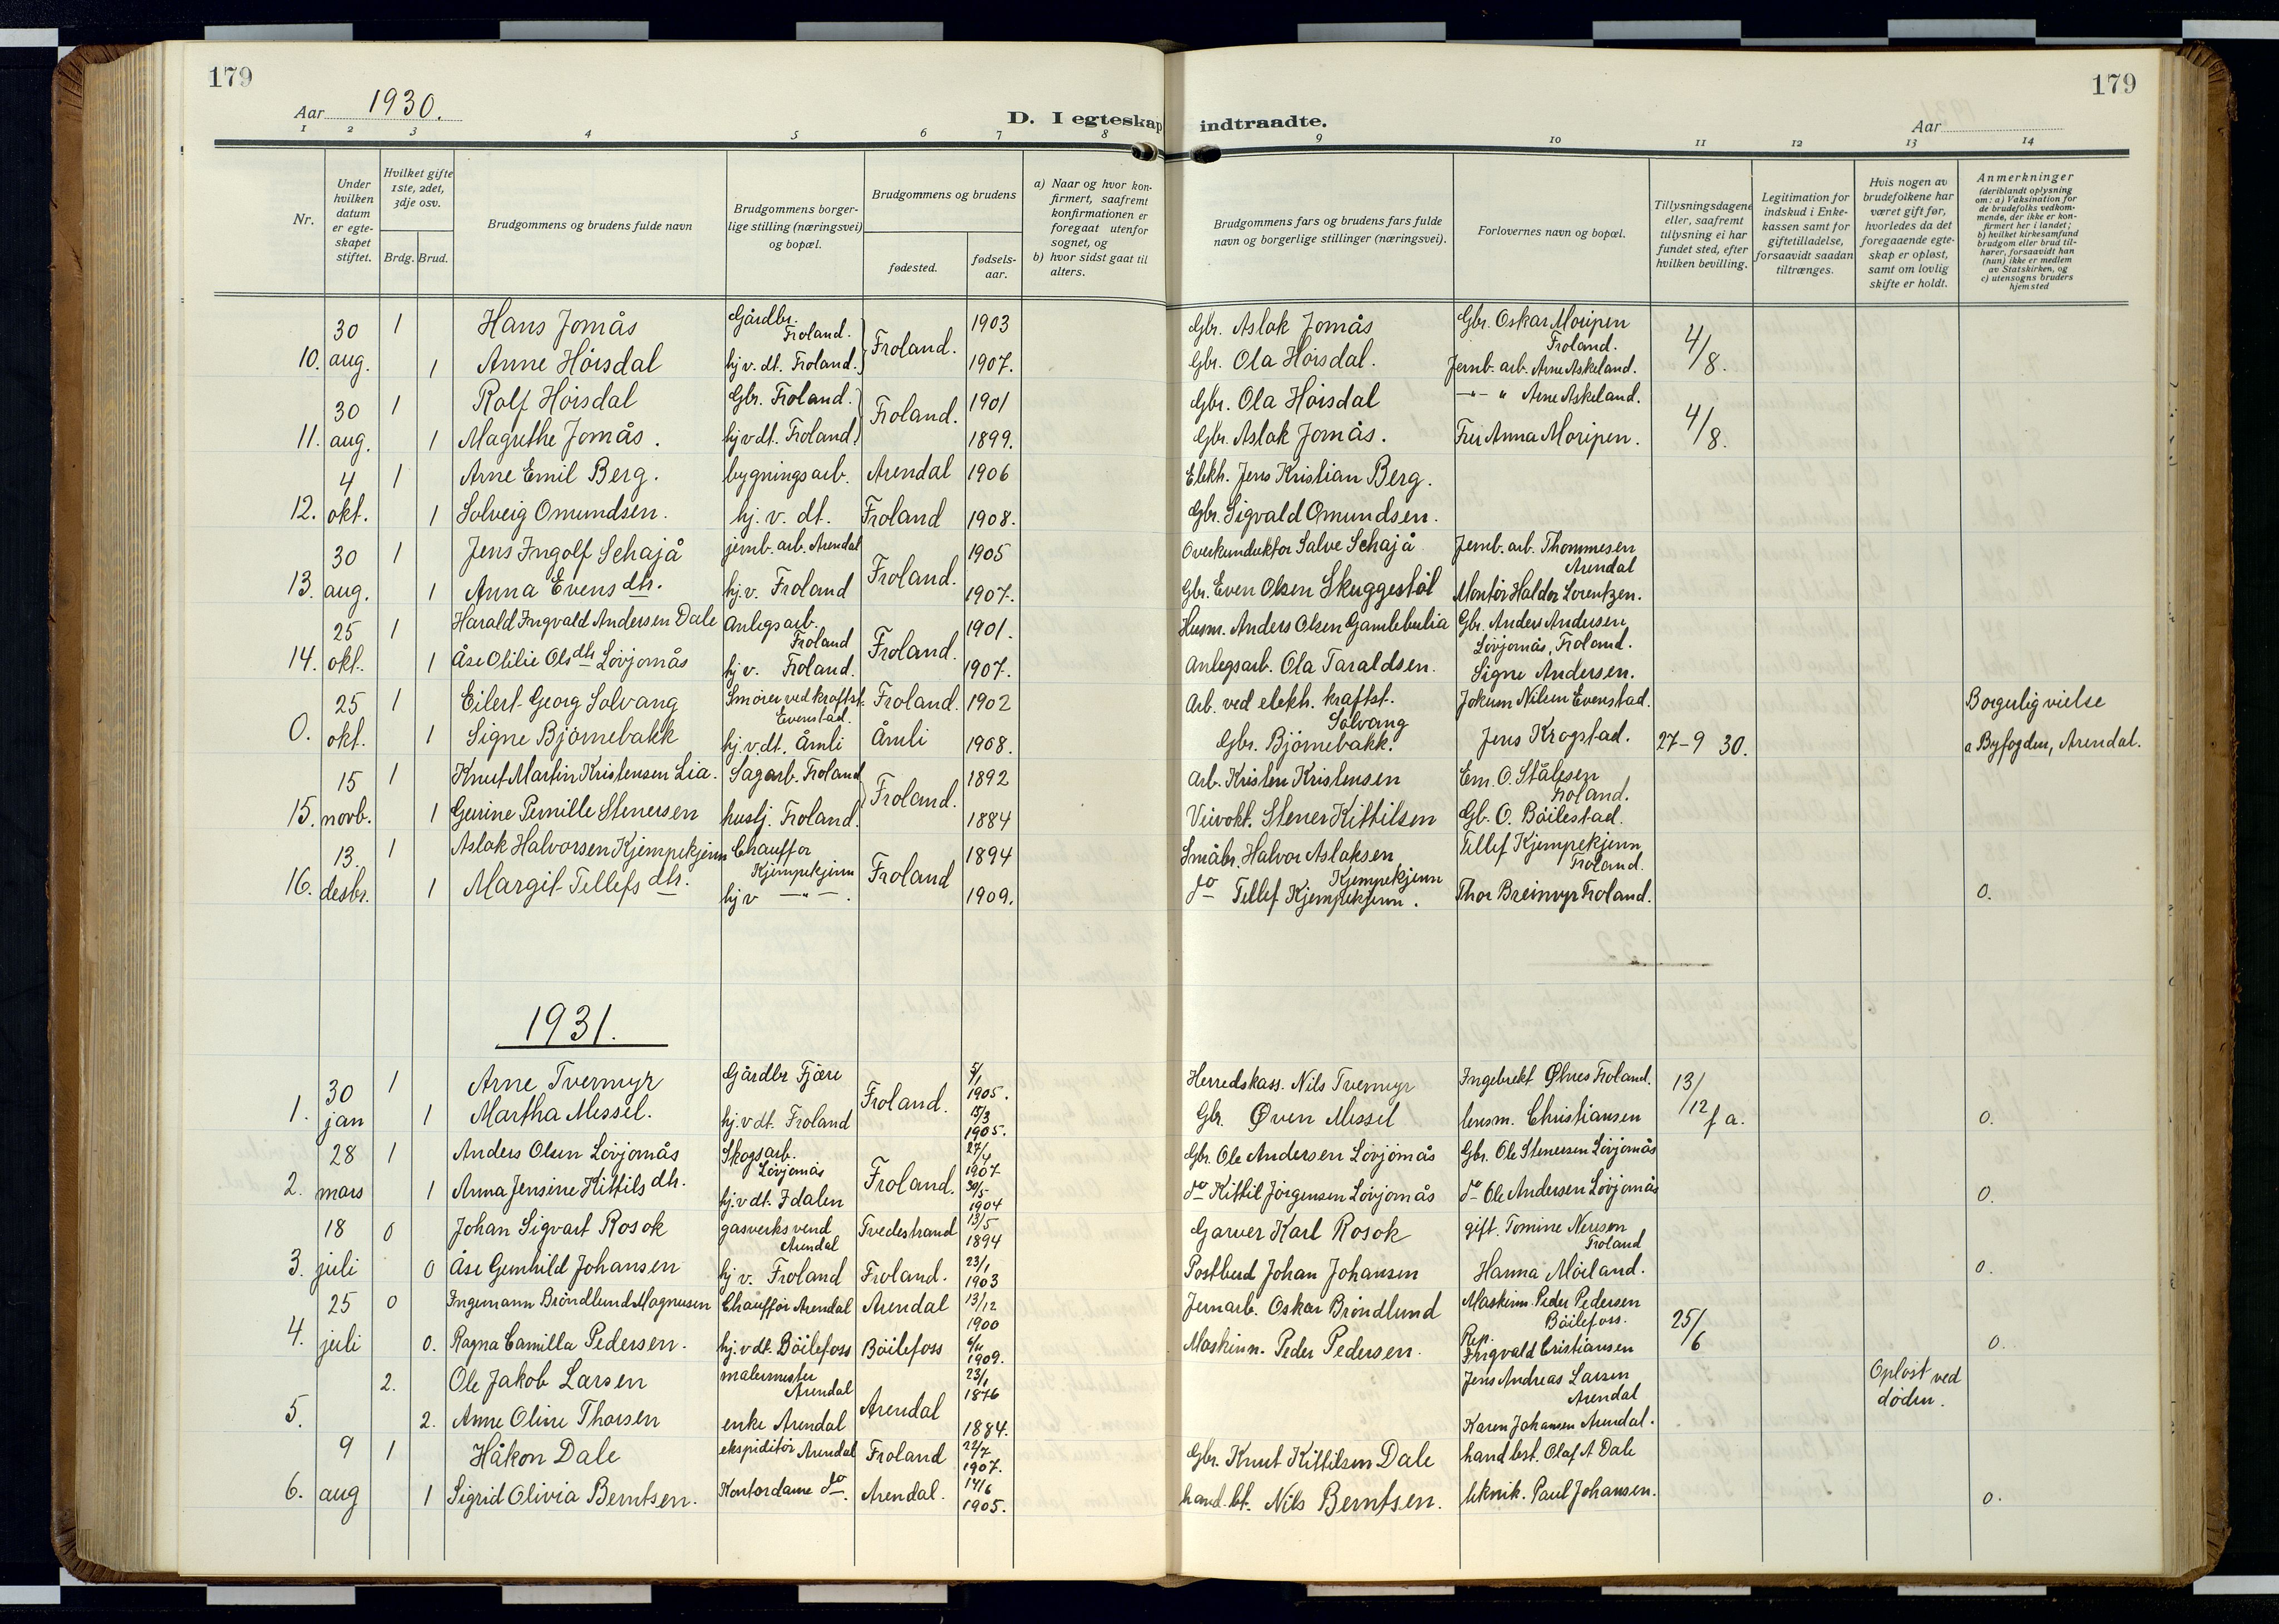 179
179
Aar 1930.
D. I egteskap indtraadte.
Aar
1 2 3 4 5 6 7 8 9 10 11 12 13 14
Nr.
Under hvilken datum er egteskapet stiftet.
Hvilket gifte 1ste, 2det, 3dje osv.
Brdg. Brud.
Brudgommens og brudens fulde navn
Brudgommens borgerlige stilling (næringsvei) og bopæl.
Brudgommens og brudens
fødested.
fødselsaar.
a) Naar og hvor konfirmert, saafremt konfirmationen er foregaat utenfor sognet, og
b) hvor sidst gaat til alters.
Brudgommens fars og brudens fars fulde navn og borgerlige stillinger (næringsvei).
Forlovernes navn og bopæl.
Tillysningsdagene eller, saafremt tillysning ei har fundet sted, efter hvilken bevilling.
Legitimation for indskud i Enkekassen samt for giftetilladelse, forsaavidt saadan tiltrænges.
Hvis nogen av brudefolkene har været gift før, hvorledes da det foregaaende egteskap er opløst, samt om lovlig skifte er holdt.
Anmerkninger (deriblandt oplysning om: a) Vaksination for de brudefolks vedkommende, der ikke er konfirmert her i landet; b) hvilket kirkesamfund brudgom eller brud tilhører, forsaavidt han (hun) ikke er medlem av Statskirken, og c) utensogns bruders hjemsted
30 1 Hans Jomås Gårdbr. Froland. Froland. 1903 Gbr. Aslak Jomås Gbr. Oskar Moripen Froland. 4/8.
10. aug. 1 Anne Hörsdal hj v. dt. Froland. 1907. Gbr. Ola Hörsdal. Jernb. arb. Arne Askeland.
30 1 Rolf Hörsdal Gbr. Froland. Froland. 1901 Gbr. Ola Hörsdal —"— " Arne Askeland. 4/8.
11. aug. 1 Magrethe Jomås. hj v dt. Froland. 1899. Gbr. Aslak Jomås. Frü Anna Moripen.
4 1 Arne Emil Berg. bygningsarb. Arendal 1906 Elektr. Jens Kristian Berg.
12. okt. 1 Solveig Omundsen. hj. v. dt. Froland 1908. Gbr. Sigvald Omundsen.
30 1 Jens Ingolf Schajå jernb. arb. Arendal Froland. 1905 Overkunduktor Salve Schajå Jernb. arb. Thommesen Arendal
13. aug. 1 Anna Evens dtr. hj. v. Froland 1907. Gbr. Even Olsen Skuggestøl Montör Haldor Lorentzen.
25 1 Harald Ingvald Andersen Dale Anlegsarb. Froland Froland. 1901. Husm. Anders Olsen Gamlebulia Gbr. Anders Andersen Lövjomås, Froland.
14. okt. 1 Åse Otilie Ols dtr Lövjomås hj v. Froland. 1907. Anlegsarb. Ola Taraldsen. Signe Andersen.
25 1 Eilert Georg Solvang Smörer ved kraftst. Evenstad. Froland. 1902 Arb. ved elektr. kraftst. Solvang Jokum Nilsen Evenstad. Borgerlig vielse
0. okt. 1 Signe Björnebakk hj. v. dt. Åmli Åmli 1908. Gbr. Björnebakk. Jens Krogstad. 27-9 30. a Byfogden, Arendal.
15 1 Knut Martin Kristensen Lia. Sagarb. Froland Froland. 1892 Arb. Kristen Kristensen Em. O. Stålesen Froland.
15. novb. 1 Gurine Pernille Stenersen huslj. Froland. 1884 Stener Kittilsen Gb. O. Böilestad.
13. 1 Aslak Halvorsen Kjempekjenn Chauffør Kjempekjenn Froland 1894 Småbr. Halvor Aslaksen Kjempekjenn Tellef Kjempekjenn Froland.
16. desbr. 1 Margit Tellefs dtr. hj v —"—. 1909. do Tellef Kjempekjenn. Thor Breimyr Froland. 0.
1931.
30 1 Arne Tvermyr Gårdbr Fjære Froland. 5/1 1905. Herredskass. Nils Tvermyr Ingebrekt Ølnes Froland. 13/12 f a.
1. jan 1 Martha Messel. hj. v dt. Froland 15/3 1905. Gbr. Øven Messel lensm. Christiansen 0.
28 1 Anders Olsen Lövjomås Skogsarb. Lövjomås Froland. 27/4 1907. Gbr. Ole Andersen Lövjomås Gbr. Ole Stenersen Lövjomås
2. mars 1 Anna Jensine Kittils dtr. hj. v dt. Idalen 30/5 1904 do Kittil Jörgensen Lövjomås do Ole Andersen Lövjomås 0.
18 0 Johan Sigvart Rosok gasverksvend Arendal Tvedestrand 13/5 1894 Garver Karl Rosok gift. Tomine Neresen Froland
3. juli 0 Åse Gunhild Johansen hj v. Froland Froland. 23/1 1903 Postbud Johan Johansen Hanna Möiland. 0.
25 0 Ingemann Bröndlund Magnusen Chauffør Arendal Arendal 13/12 1900 Jernarb. Oskar Bröndlund Maskinm. Peder Pedersen Böilefoss. 25/6
4. juli 0. Ragna Camilla Pedersen. hj. v dt. Böilefoss Böilefoss 6/11 1909. Maskinm. Peder Pedersen. Rep. Ingvald Cristiansen 0.
2. Ole Jakob Larsen malermester Arendal Arendal 23/1 1876 Jens Andreas Larsen Arendal Opløst ved døden.
5. 2. Anne Oline Thorsen enke Arendal 1884. Karen Johansen Arendal.
9 1 Håkon Dale ekspiditör Arendal Froland 22/7 1907. Gbr. Knut Kittilsen Dale hand. best. Olaf A Dale
6. aug 1 Sigrid Olivia Berntsen. Kontordame do. Arendal. 14/6 1905. hand. bt. Nils Berntsen. teknik. Paul Johansen. 0.